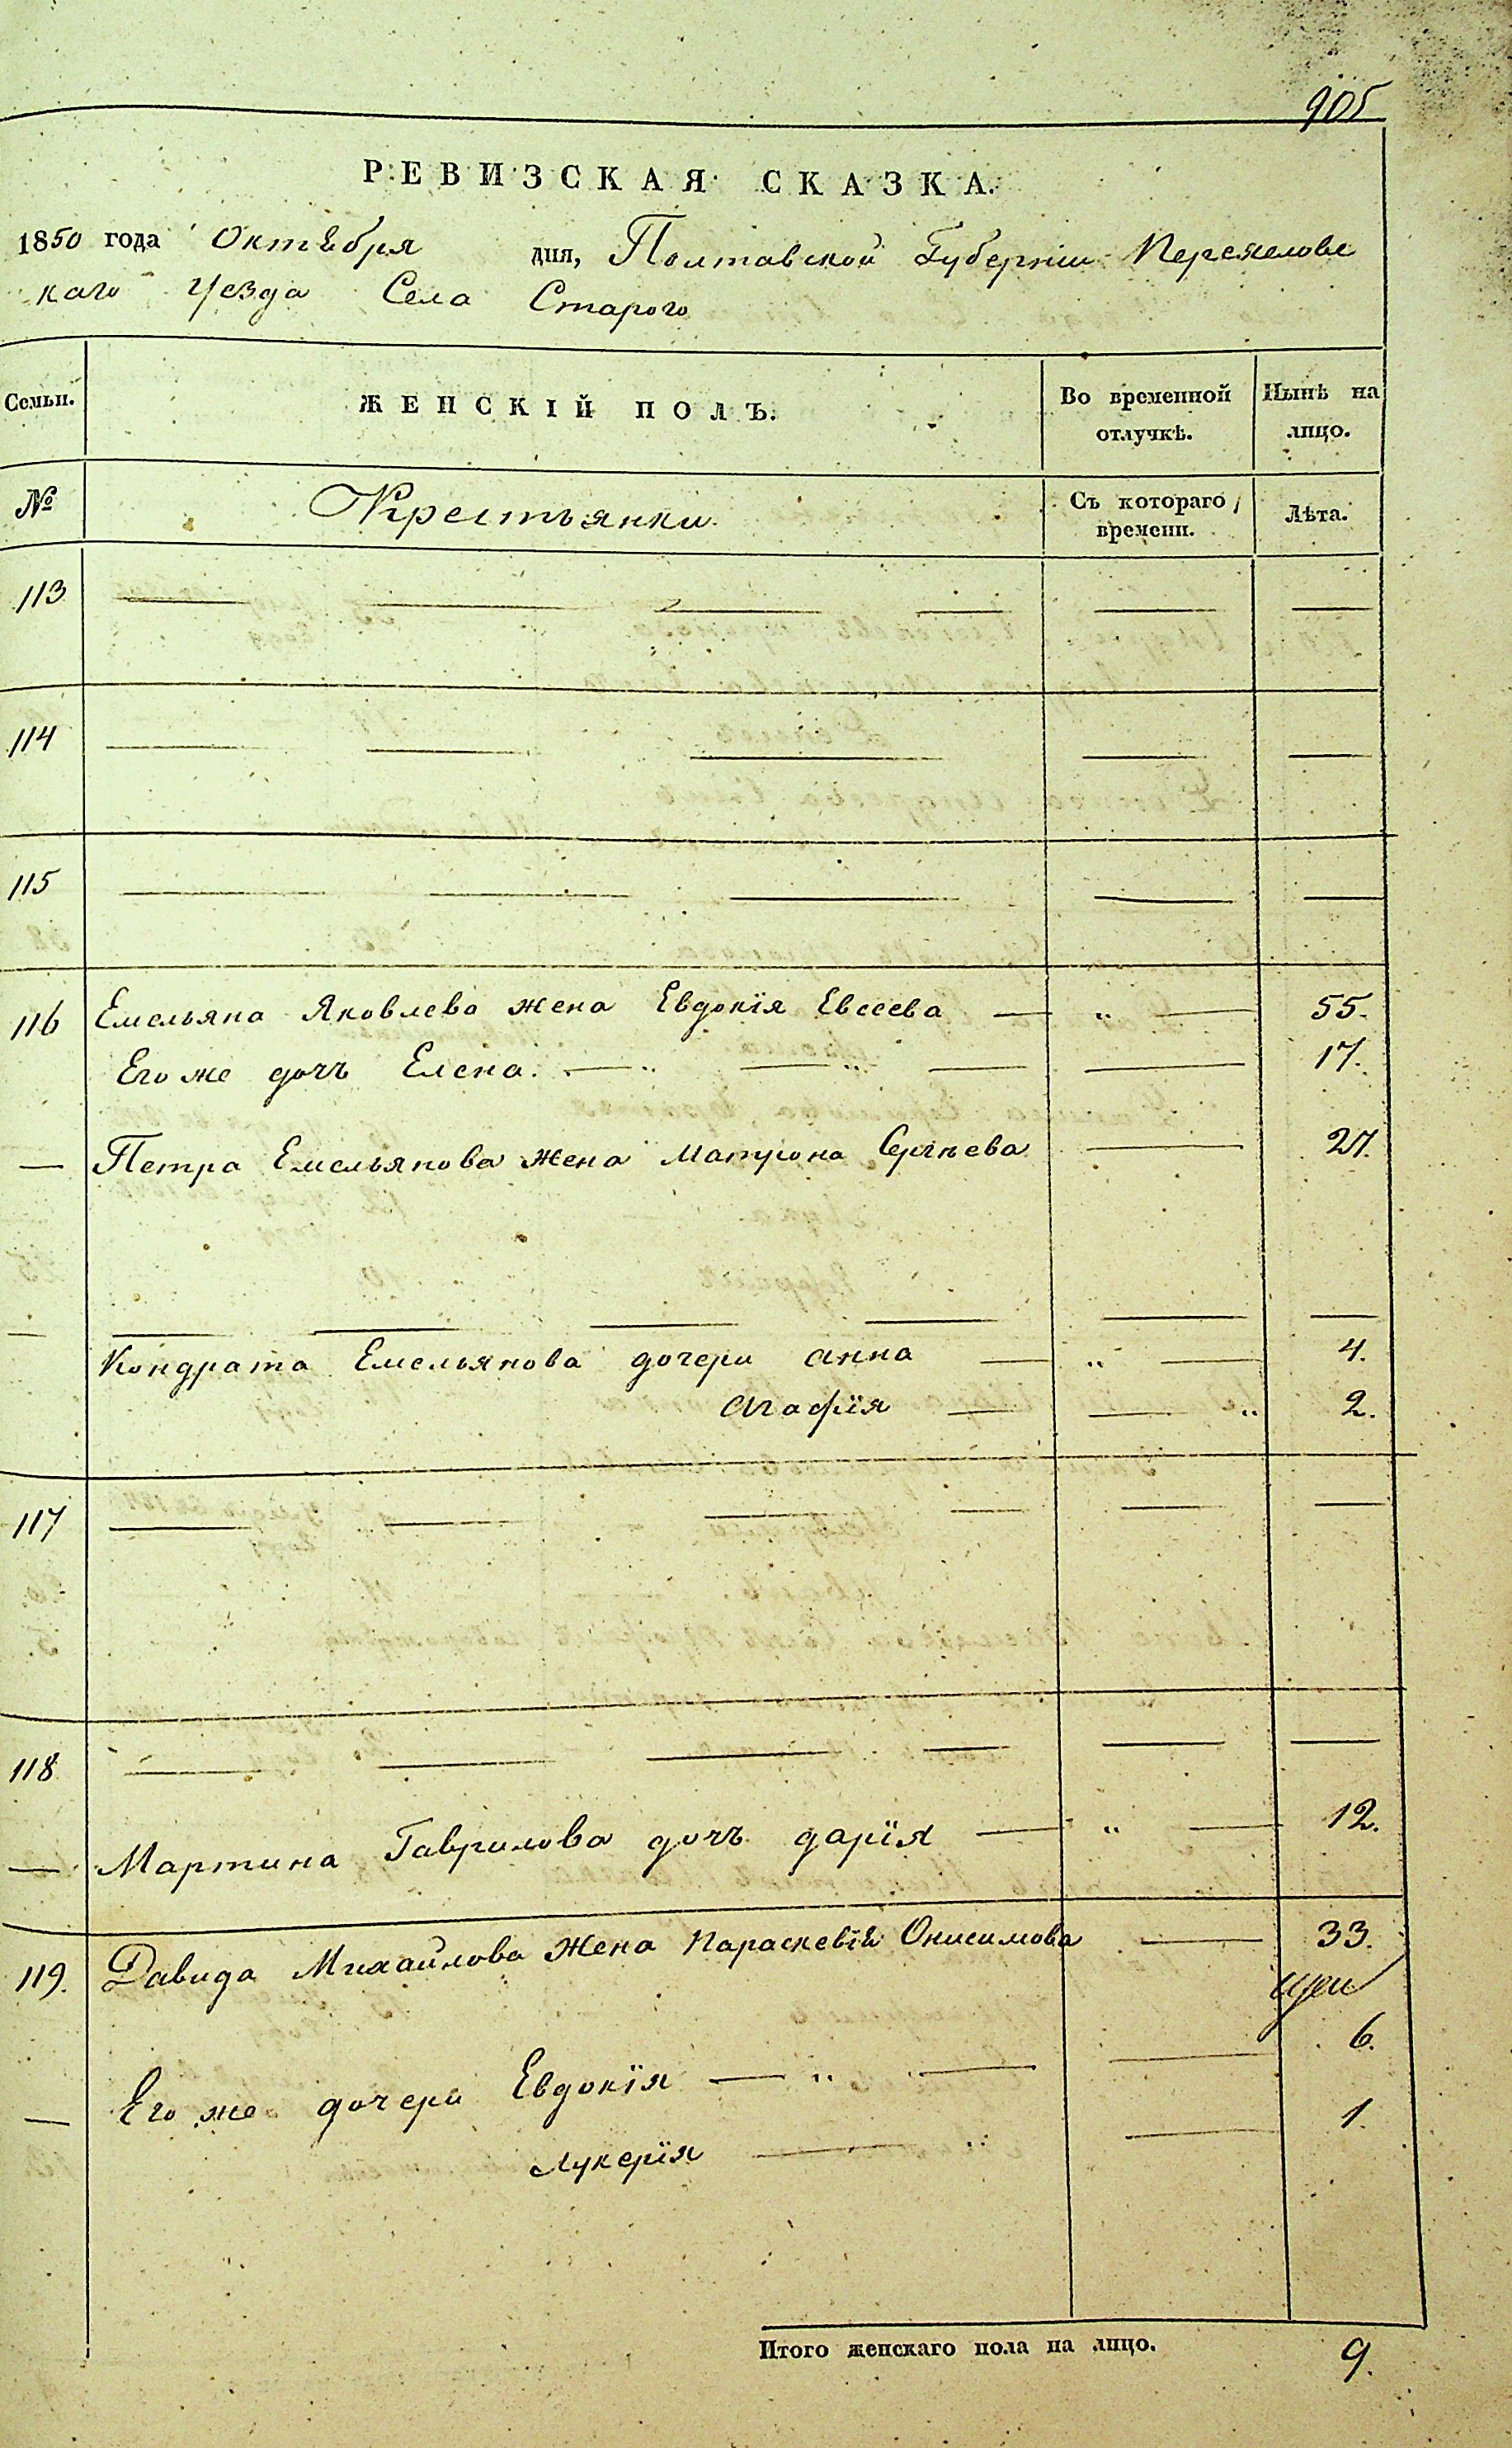 905
РЕВИЗСКАЯ СКАЗКА.
1850 года Октября дня, Полтавской Губернии Переяловс
каго Уезда Села Старого
Семьи. ЖЕНСКІЙ ПОЛЪ. Во временной отлучкѣ. Нынѣ на лицо.
№ Крестьянки. Съ котораго времени. Лѣта.
113
114
115
116 Емельяна Яковлева жена Евдокїя Евсеева 55.
Его же дочь Елена. 17.
Петра Емельянова жена Матрона Сергѣева 27.
Кондрата Емельянова дочери анна 4.
Агафїя 2.
117
118
Мартина Гаврилова дочь дарїя 12.
119. Давида Михайлова жена Параскевїя Онисимова 33.
Его же дочери Евдокїя 6.
Лукерїя 1.
Итого женскаго пола на лицо. 9.